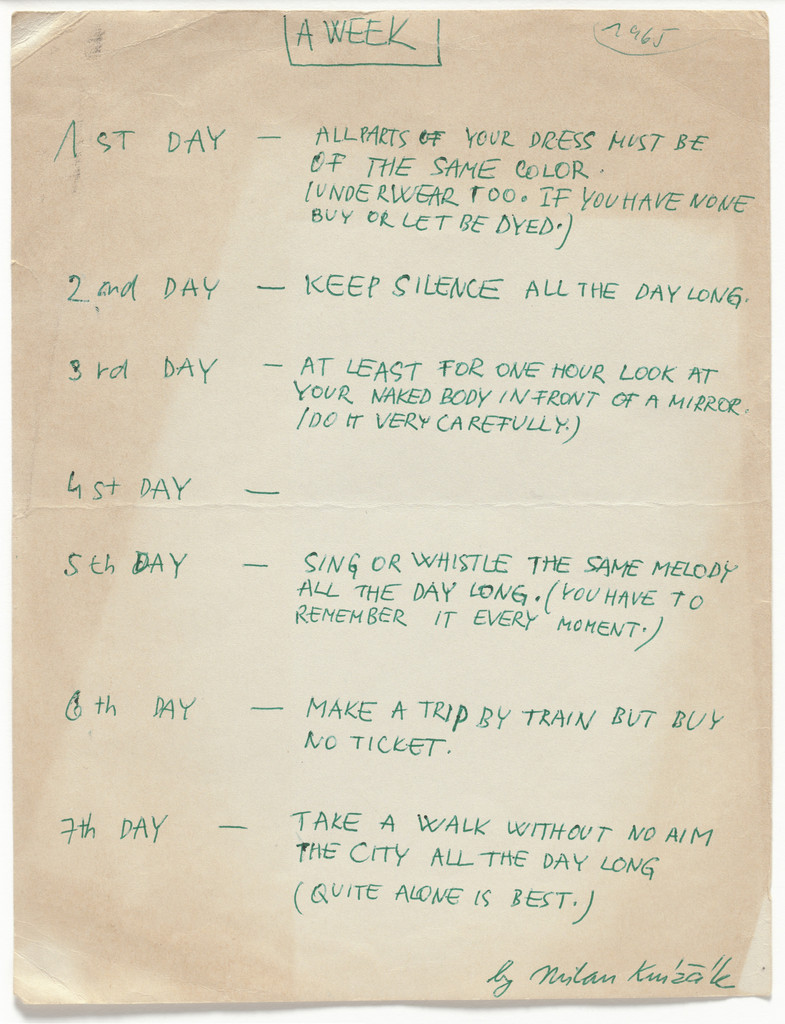 A WEEK
1965
1ST DAY — ALL PARTS OF YOUR DRESS MUST BE
OF THE SAME COLOR.
(UNDERWEAR TOO. IF YOU HAVE NONE
BUY OR LET BE DYED.)
2nd DAY — KEEP SILENCE ALL THE DAY LONG.
3rd DAY — AT LEAST FOR ONE HOUR LOOK AT
YOUR NAKED BODY IN FRONT OF A MIRROR.
(DO IT VERY CAREFULLY.)
4st DAY —
5th DAY — SING OR WHISTLE THE SAME MELODY
ALL THE DAY LONG. (YOU HAVE TO
REMEMBER IT EVERY MOMENT.)
6th DAY — MAKE A TRIP BY TRAIN BUT BUY
NO TICKET.
7th DAY — TAKE A WALK WITHOUT NO AIM
THE CITY ALL THE DAY LONG
(QUITE ALONE IS BEST.)
by Milan Knížák